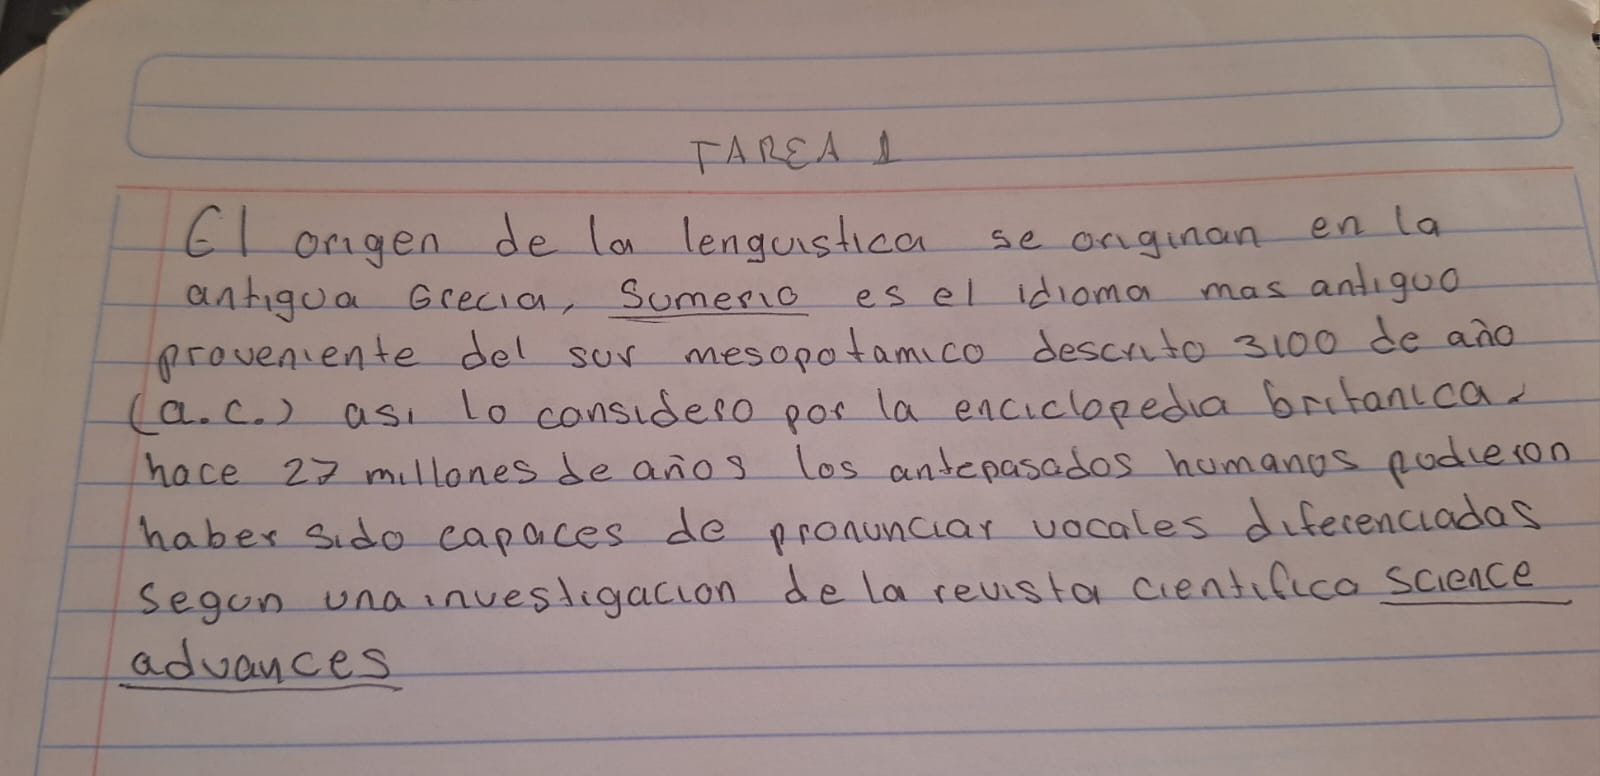 TAREA 1
El origen de la lenguistica se originan en la
antigua Grecia, Sumerio es el idioma mas antiguo
proveniente del sur mesopotamico descrito 3100 de año
(a.c.) asi lo considero por la enciclopedia britanica.
hace 27 millones de años los antepasados humanos pudieron
haber sido capaces de pronunciar vocales diferenciadas
segun una investigacion de la revista cientifica science
advances